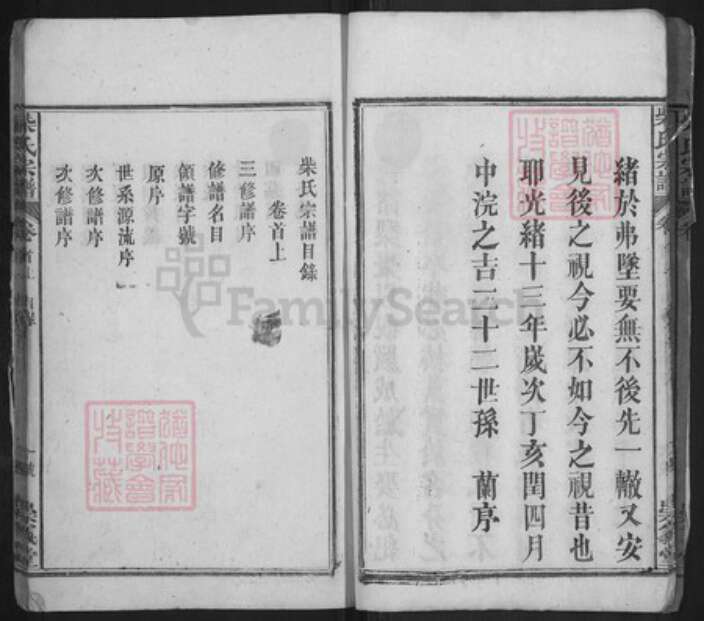 緒於弗墜要無不後先一轍又安
見後之視今必不如今之視昔也
耶光緒十三年歲次丁亥閏四月
中浣之吉三十二世孫 蘭序
柴氏宗譜目錄
卷首上
三修譜序
修譜名目
領譜字號
原序
世系源流序
次修譜序
次修譜序
柴氏宗譜
FamilySearch